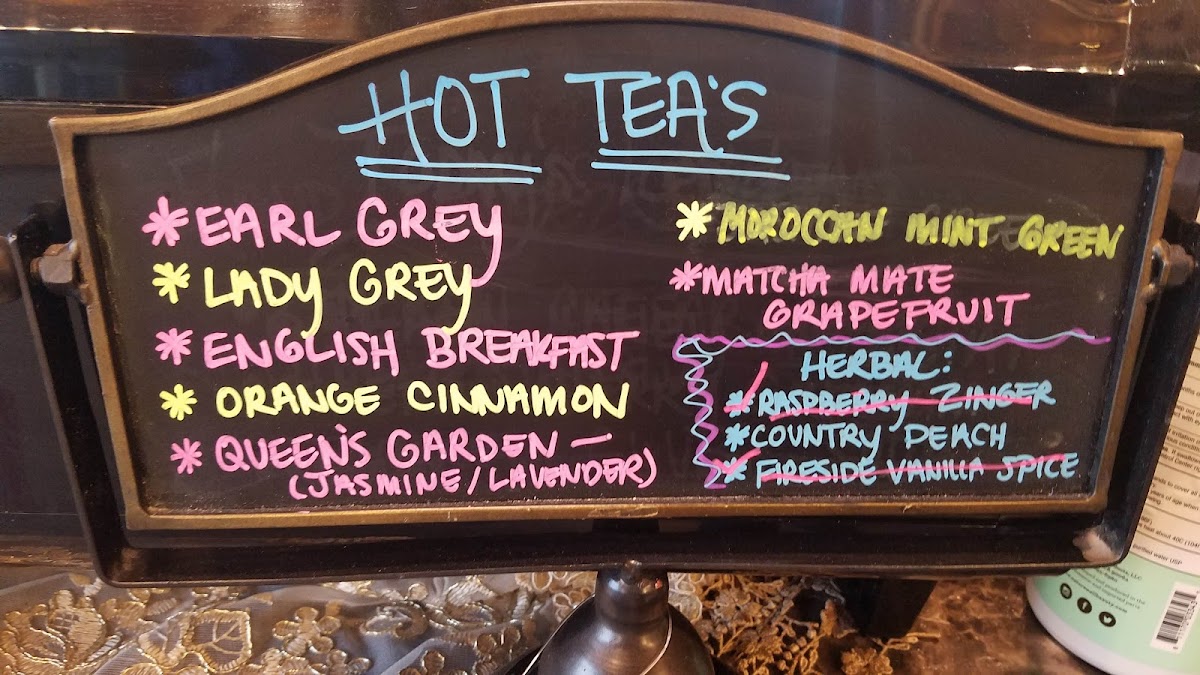 HOT TEA'S
*EARL GREY
*LADY GREY
*ENGLISH BREAKFAST
*ORANGE CINNAMON
*QUEEN'S GARDEN —
(JASMINE/LAVENDER)
*MOROCCAN MINT GREEN
*MATCHA MATE
GRAPEFRUIT
HERBAL:
*RASPBERRY ZINGER
*COUNTRY PEACH
*FIRESIDE VANILLA SPICE
purified water USP